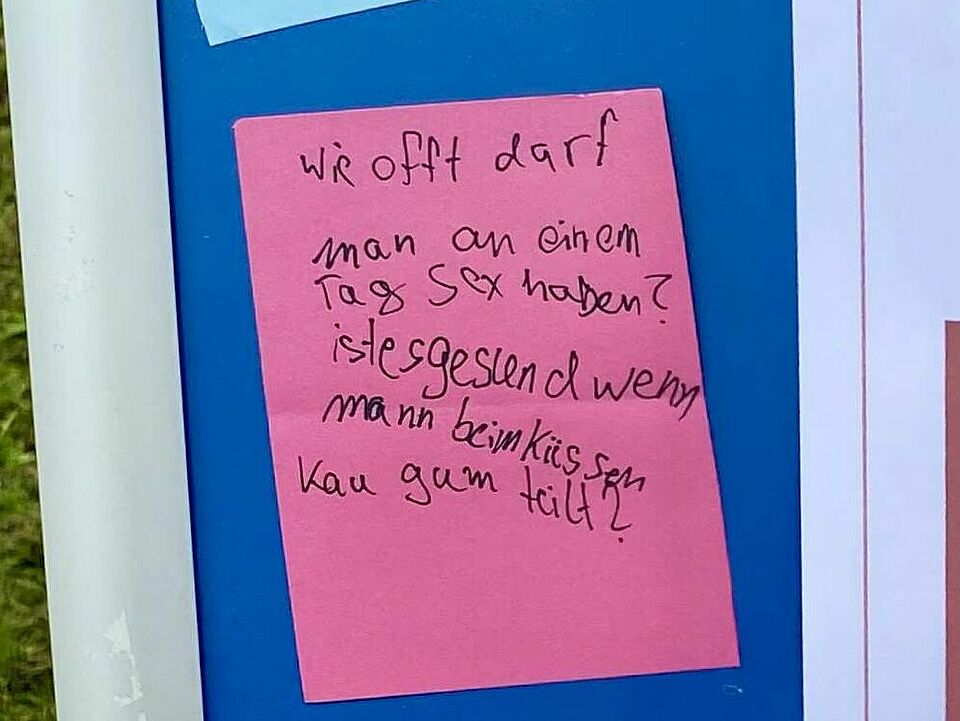 wie offt darf
man an einem
Tag Sex haben?
istesgesund wenn
mann beimküssen
Kau gum teilt?